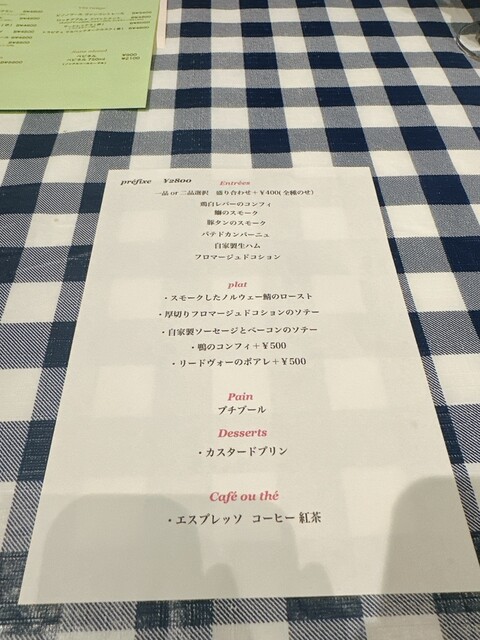 préfixe ¥2800
Entrées
一品 or 二品選択 盛り合わせ+¥400(全種のせ)
鶏白レバーのコンフィ
鰤のスモーク
豚タンのスモーク
パテドカンパーニュ
自家製生ハム
フロマージュドコション
plat
・スモークしたノルウェー鯖のロースト
・厚切りフロマージュドコションのソテー
・自家製ソーセージとベーコンのソテー
・鴨のコンフィ+¥500
・リードヴォーのポアレ+¥500
Pain
プチブール
Desserts
・カスタードプリン
Café ou thé
・エスプレッソ コーヒー 紅茶